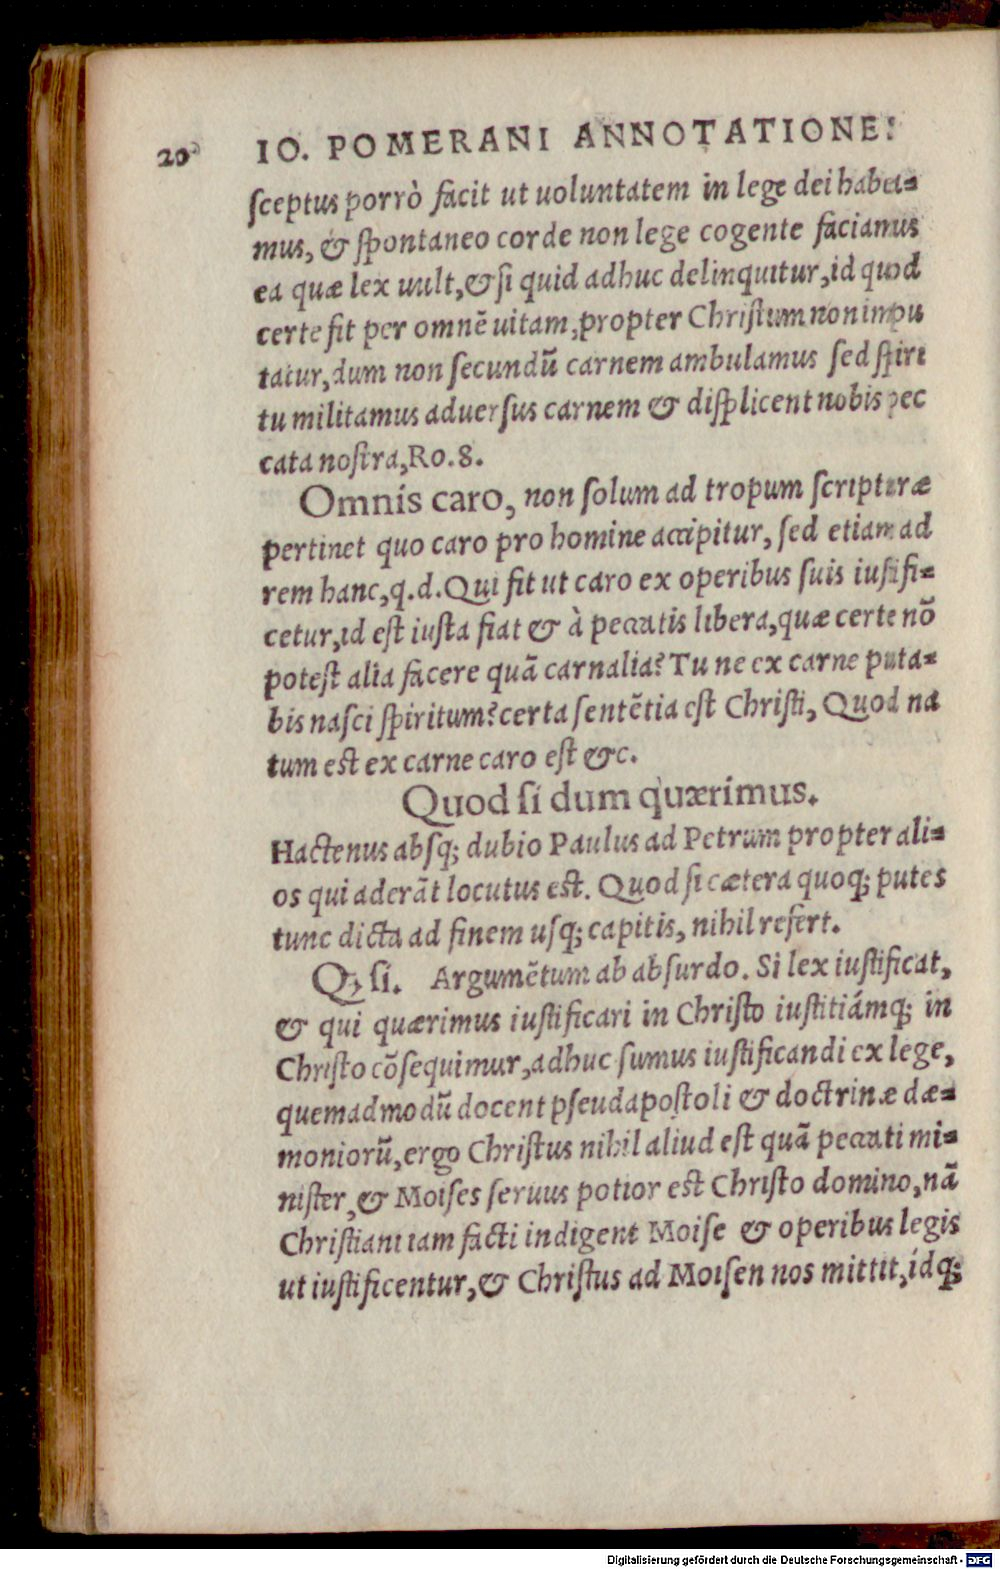 20 IO. POMERANI ANNOTATIONES
ſceptus porrò facit ut uoluntatem in lege dei habea=
mus, & ſpontaneo corde non lege cogente faciamus
ea quæ lex uult, & ſi quid adhuc delinquitur, id quod
certe fit per omnē uitam, propter Chriſtum non impu
tatur, dum non ſecundū carnem ambulamus ſed ſpiri
tu militamus aduerſus carnem & diſplicent nobis pec
cata noſtra, Ro. 8.
Omnis caro, non ſolum ad tropum ſcripturæ
pertinet quo caro pro homine accipitur, ſed etiam ad
rem hanc, q. d. Qui fit ut caro ex operibus ſuis iuſtifi=
cetur, id eſt iuſta fiat & à peccatis libera, quæ certe nō
poteſt alia facere quā carnalia? Tu ne ex carne puta=
bis naſci ſpiritum? certa ſentētia eſt Chriſti, Quod na
tum eſt ex carne caro eſt &c.
Quod ſi dum quærimus.
Hactenus abſq; dubio Paulus ad Petrum propter ali=
os qui aderāt locutus eſt. Quod ſi cætera quoq; putes
tunc dicta ad finem uſq; capitis, nihil refert.
Qꝫ ſi. Argumētum ab abſurdo. Si lex iuſtificat,
& qui quærimus iuſtificari in Chriſto iuſtitiámq; in
Chriſto cōſequimur, adhuc ſumus iuſtificandi ex lege,
quemadmodū docent pſeudapoſtoli & doctrinæ dæ=
moniorū, ergo Chriſtus nihil aliud eſt quā peccati mi=
niſter, & Moiſes ſeruus potior eſt Chriſto domino, nā
Chriſtiani iam facti indigent Moiſe & operibus legis
ut iuſtificentur, & Chriſtus ad Moiſen nos mittit, idq;
Digitalisierung gefördert durch die Deutsche Forschungsgemeinschaft - DFG